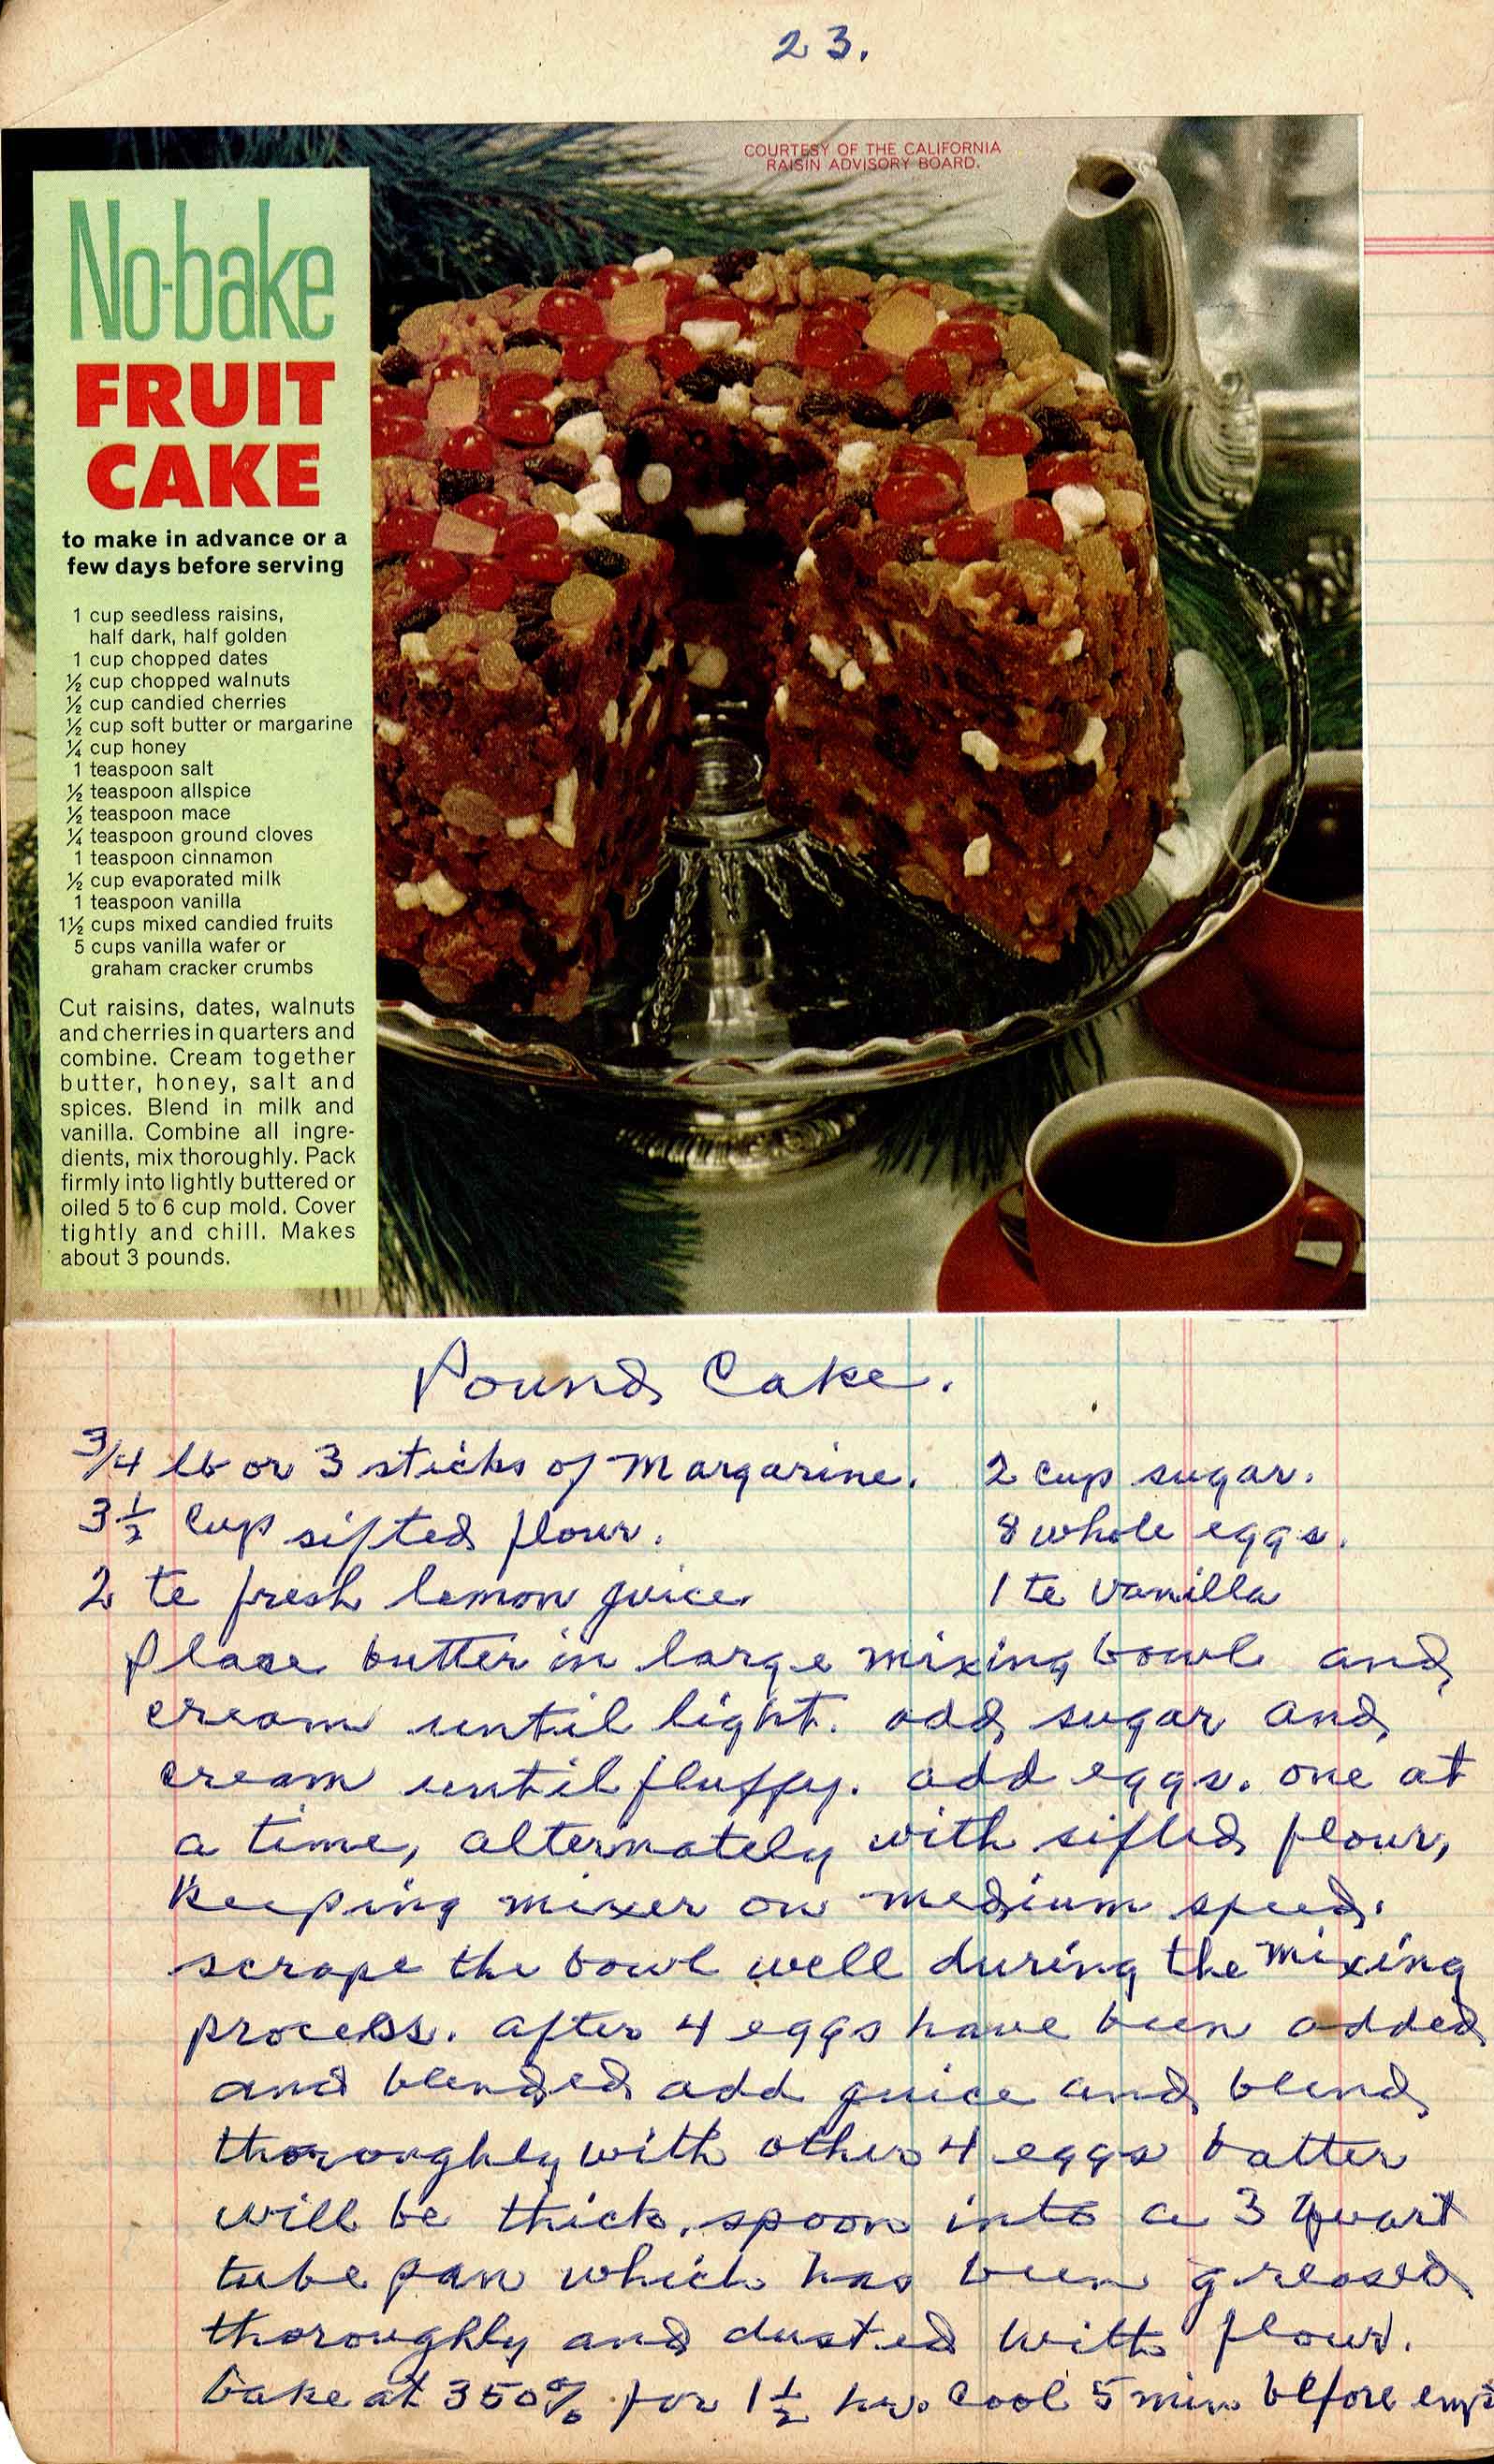 23.
COURTESY OF THE CALIFORNIA
RAISIN ADVISORY BOARD.
No-bake
FRUIT
CAKE
to make in advance or a
few days before serving
1 cup seedless raisins,
half dark, half golden
1 cup chopped dates
½ cup chopped walnuts
½ cup candied cherries
½ cup soft butter or margarine
¼ cup honey
1 teaspoon salt
½ teaspoon allspice
½ teaspoon mace
¼ teaspoon ground cloves
1 teaspoon cinnamon
½ cup evaporated milk
1 teaspoon vanilla
1½ cups mixed candied fruits
5 cups vanilla wafer or
graham cracker crumbs
Cut raisins, dates, walnuts
and cherries in quarters and
combine. Cream together
butter, honey, salt and
spices. Blend in milk and
vanilla. Combine all ingre-
dients, mix thoroughly. Pack
firmly into lightly buttered or
oiled 5 to 6 cup mold. Cover
tightly and chill. Makes
about 3 pounds.
Pound Cake.
3/4 lb or 3 sticks of Margarine. 2 cup sugar.
3½ Cup sifted flour. 8 whole eggs.
2 te fresh lemon juice 1 te vanilla
place butter in large mixing bowl and
cream until light. add sugar and
cream until fluffy. add eggs. one at
a time, alternately with sifted flour,
Keeping mixer on medium speed.
scrape the bowl well during the mixing
process. after 4 eggs have been added
and blended add juice and blend
thoroughly with other 4 eggs batter
will be thick. spoon into a 3 quart
tube pan which has been greased
thoroughly and dusted with flour.
bake at 350% for 1½ hr. Cool 5 min before